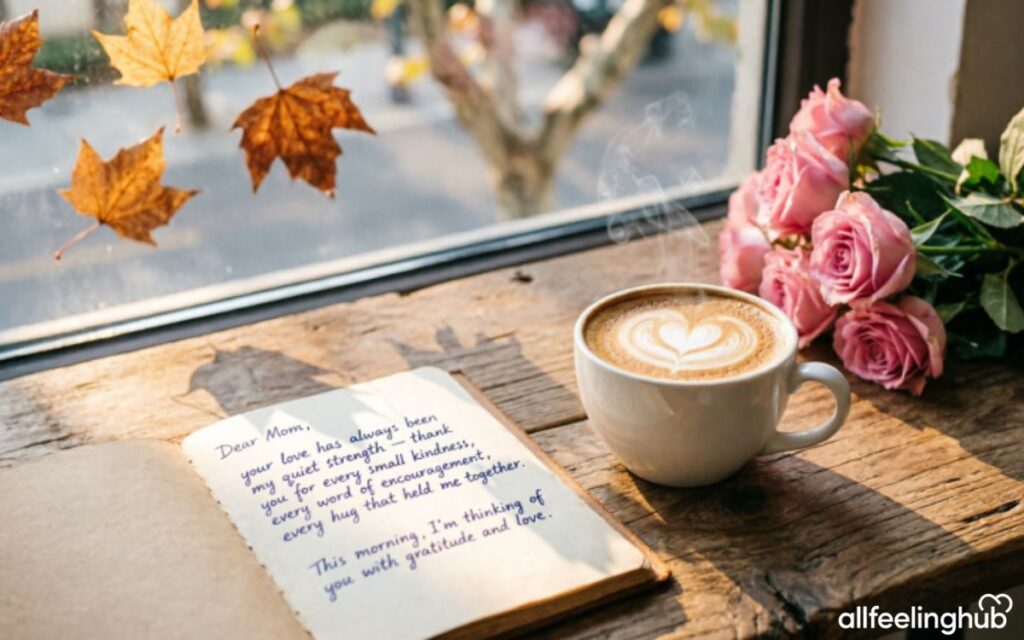 Dear Mom,
your love has always been
my quiet strength — thank
you for every small kindness,
every word of encouragement,
every hug that held me together.
This morning, I'm thinking of
you with gratitude and love.
allfeelinghub